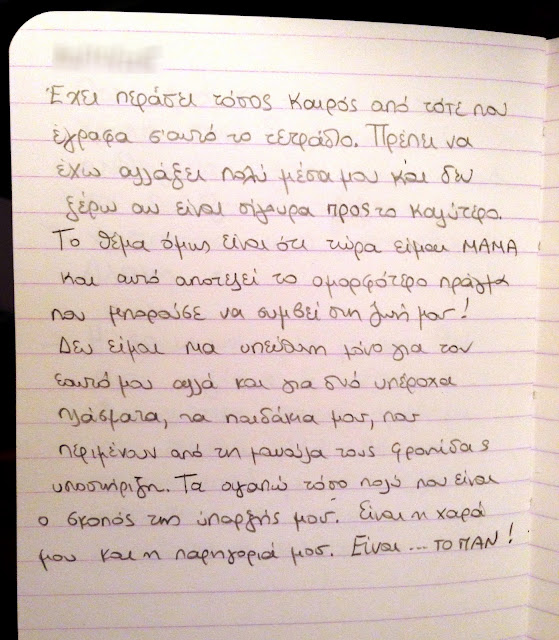 Έχει περάσει τόσος καιρός από τότε που
έγραφα σ'αυτό το τετράδιο. Πρέπει να
έχω αλλάξει πολύ μέσα μου και δεν
ξέρω αν είναι σίγουρα προς το καλύτερο.
Το θέμα όμως είναι ότι τώρα είμαι ΜΑΜΑ
και αυτό αποτελεί το ομορφότερο πράγμα
που μπορούσε να συμβεί στη ζωή μας!
Δεν είμαι πια υπεύθυνη μόνο για τον
εαυτό μου αλλά και για δυό υπέροχα
πλάσματα, τα παιδάκια μας, που
περιμένουν από τη μανούλα τους φροντίδα &
υποστήριξη. Τα αγαπώ τόσο πολύ που είναι
ο σκοπός της ύπαρξής μου. Είναι η χαρά
μου και η παρηγοριά μου. Είναι ... ΤΟ ΠΑΝ!